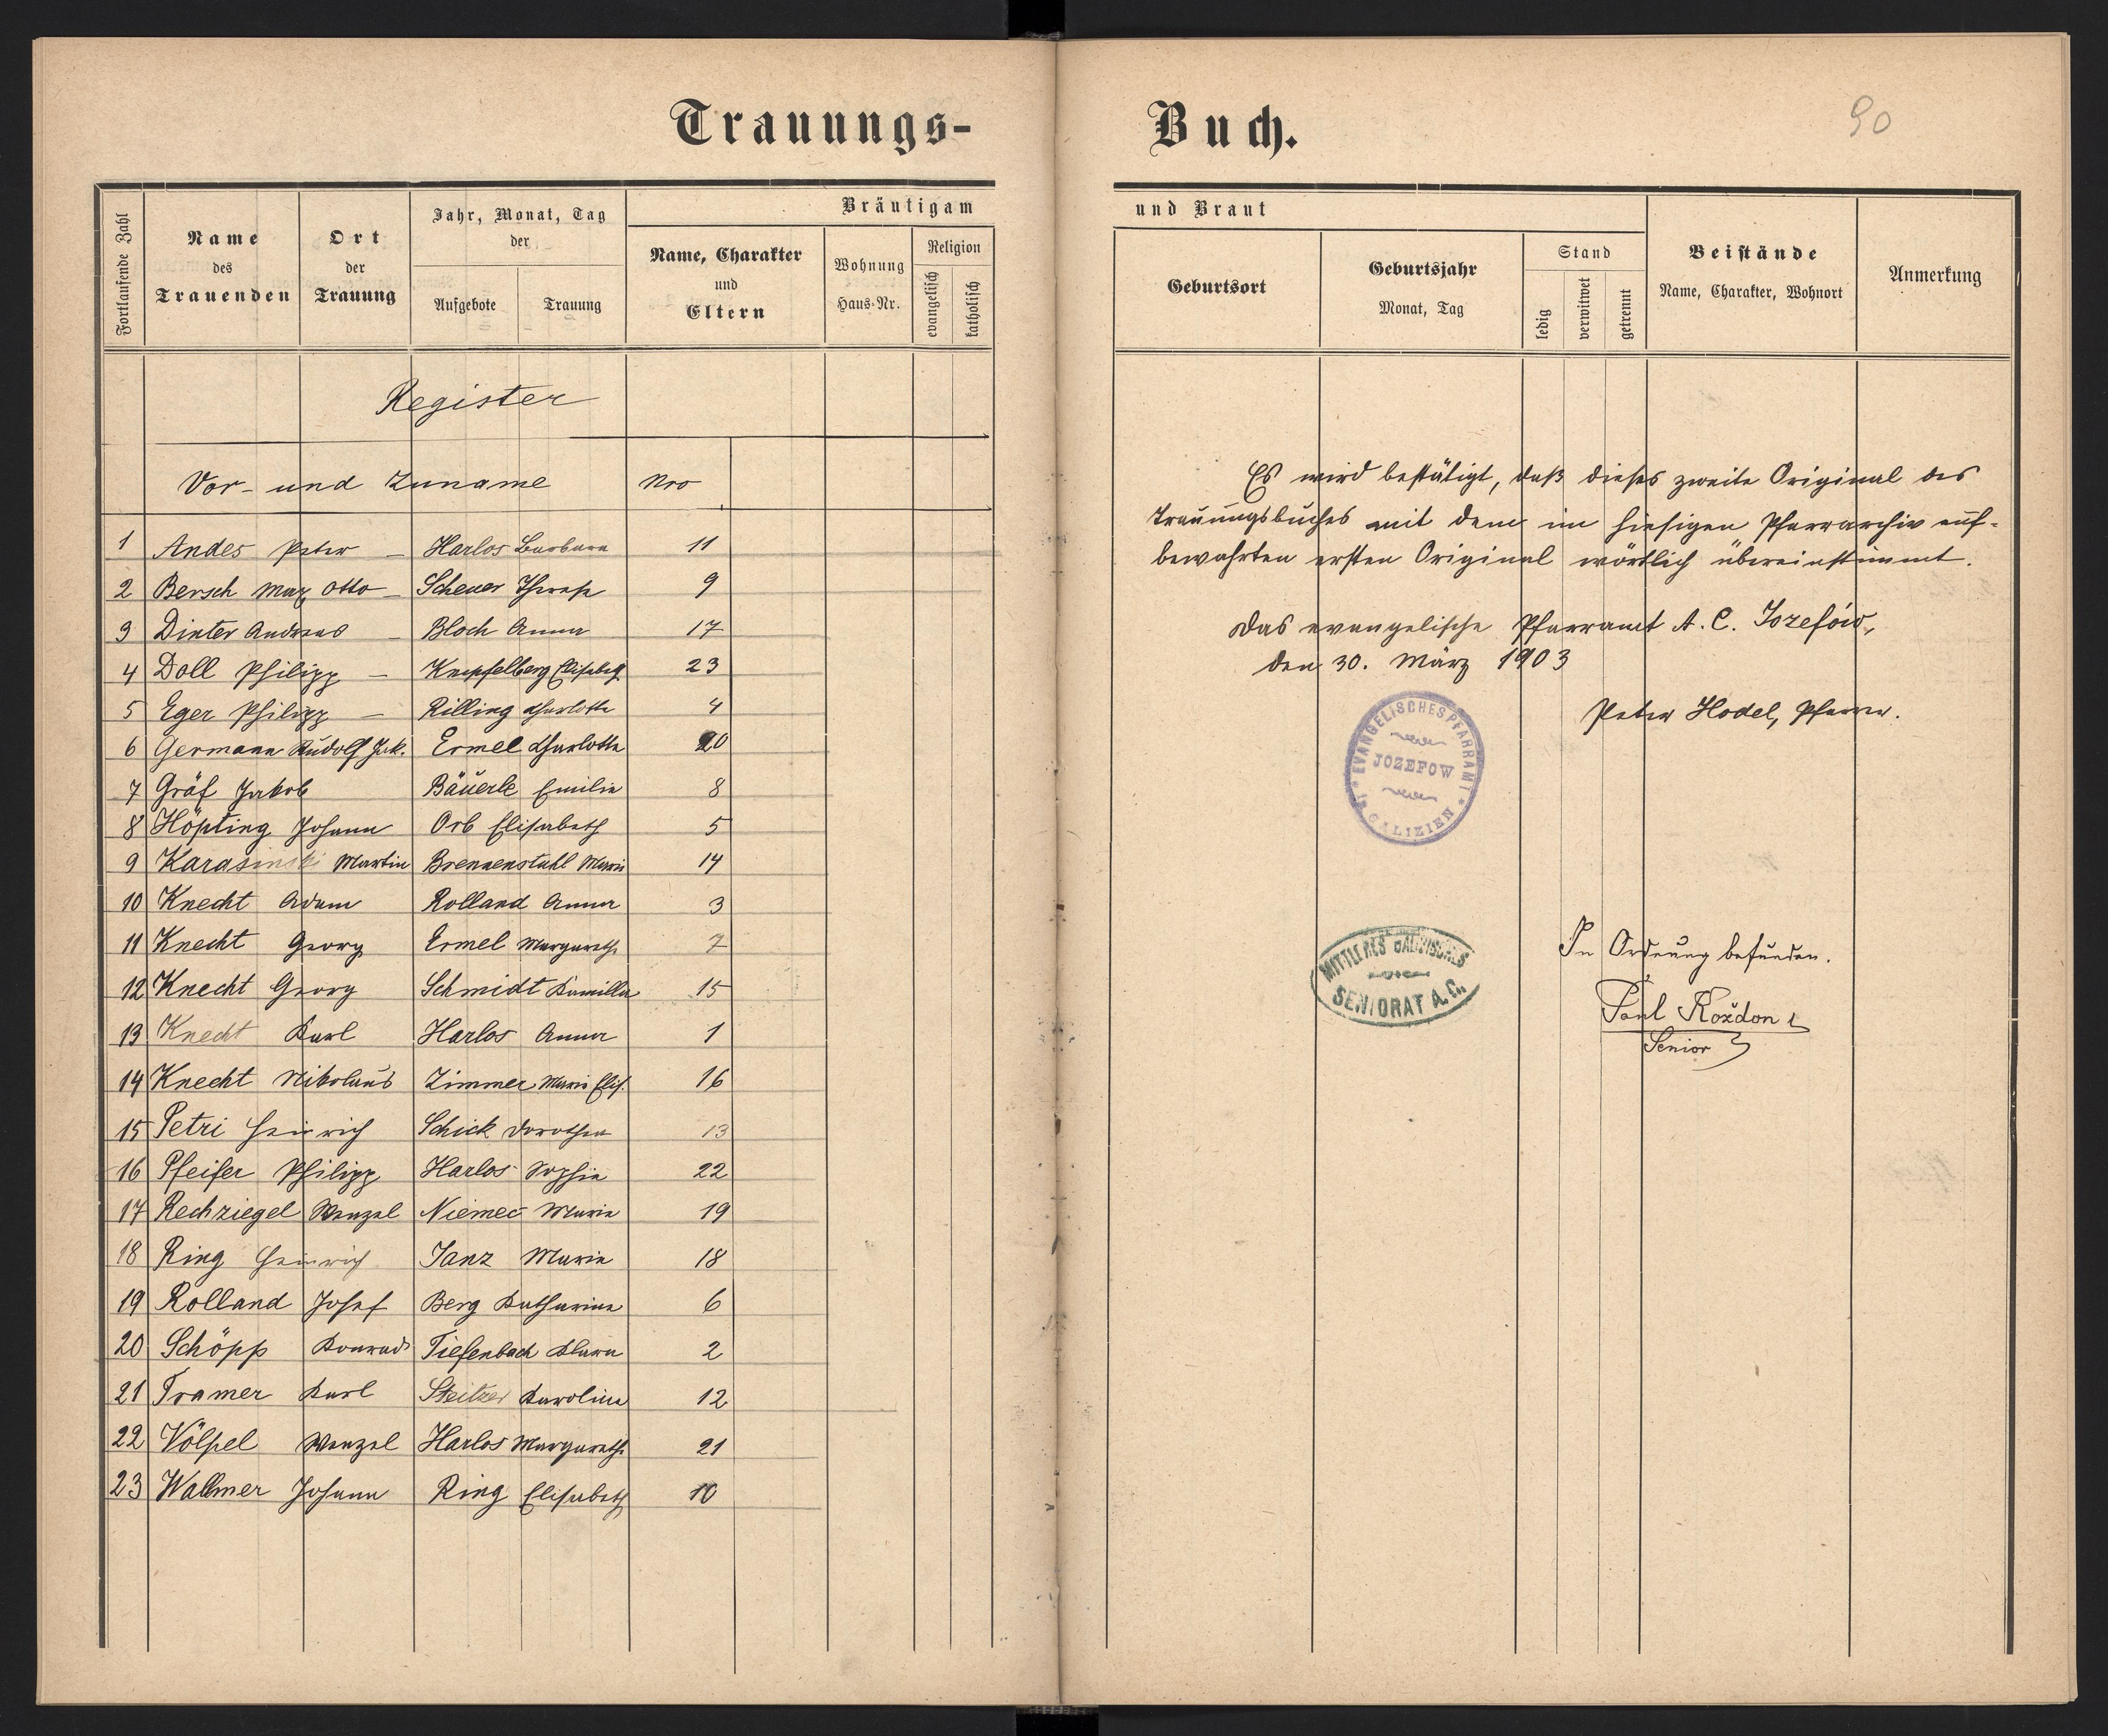 Trauungs-
Fortlaufende Zahl
Name
des
Trauenden
Ort
der
Trauung
Jahr, Monat, Tag
der
Aufgebote
Trauung
Bräutigam
Name, Charakter
und
Eltern
Wohnung
Haus-Nr.
Religion
evangelisch
katholisch
Register
Vor- und Zuname Nro
1 Andes Peter – Harlos Barbara 11
2 Bersch Max Otto – Scheuer Therese 9
3 Dinter Andreas – Bloch Anna 17
4 Doll Philipp – Knepfelberg Elisabeth 23
5 Eger Philipp – Rilling Charlotte 4
6 Germann Rudolf Jak. Ermel Charlotte 20
7 Gräf Jakob Bäuerle Emilie 8
8 Höpting Johann Orb Elisabeth 5
9 Karasinski Martin Brennenstuhl Marie 14
10 Knecht Adam Rolland Anna 3
11 Knecht Georg Ermel Margarethe 7
12 Knecht Georg Schmidt Kamilla 15
13 Knecht Karl Harlos Anna 1
14 Knecht Nikolaus Zimmer Marie Elis. 16
15 Petri Heinrich Schick Dorothea 13
16 Pfeifer Philipp Harlos Sophie 22
17 Rechziegel Wenzel Niemec Marie 19
18 Ring Heinrich Janz Marie 18
19 Rolland Josef Berg Katharina 6
20 Schöpp Konrad Tiefenbach Klara 2
21 Tramer Karl Steitzer Karoline 12
22 Völpel Wenzel Harlos Margarethe 21
23 Wallmer Johann Ring Elisabeth 10
Buch.
90
und Braut
Geburtsort
Geburtsjahr
Monat, Tag
Stand
ledig
verwitwet
getrennt
Beistände
Name, Charakter, Wohnort
Anmerkung
Es wird bestätigt, daß dieses zweite Original des
Trauungsbuches mit dem im hiesigen Pfarrarchiv auf-
bewahrten ersten Original wörtlich übereinstimmt.
Das evangelische Pfarramt A. C. Josefów,
den 30. März 1903
Peter Hodel, Pfarrer.
EVANGELISCHES PFARRAMT
JOZEFOW
IN GALIZIEN
MITTLERES GALIZISCHES
SENIORAT A. C.
In Ordnung befunden.
Paul Rożdon
Senior